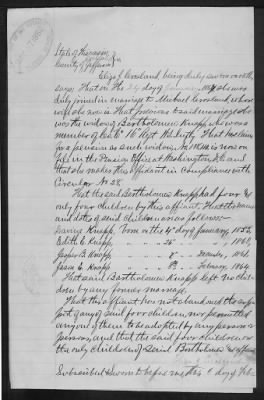 State of Wisconsin
County of Jefferson
Eliza J. Crosland, being duly sworn on oath
says: That on the 24 day of January 1867 she was
duly joined in marriage to Michael Crosland, whose
wife she now is. That previous to said marriage she
was the widow of Bartholomew Knapp who was a
member of Co. 16 Regt. That her claim
for a pension as such widow, is now on
file in the Pension Office at Washington D.C. and
that she makes this affidavit in compliance with
Circular No 28.
That the said Bartholomew Knapp had four &
only four children by this affiant. That the names
and dates of said children are as follows:
Knapp. Born on the 4" day of January 1855.
Edith E. Knapp, " " " 26" " " 1860,
Jasper B Knapp " " " 8" " 1861.
Knapp " " " 8th " February 1864.
That said Bartholomew Knapp left no chil-
dren by any former marriage.
That this affiant has not abandoned the sup-
port of any of said four children, nor permitted
any one of them to be adopted by any person or
persons, and that the said four children are
the only children of said Bartholomew
Subscribed & sworn to before me this day of Feb